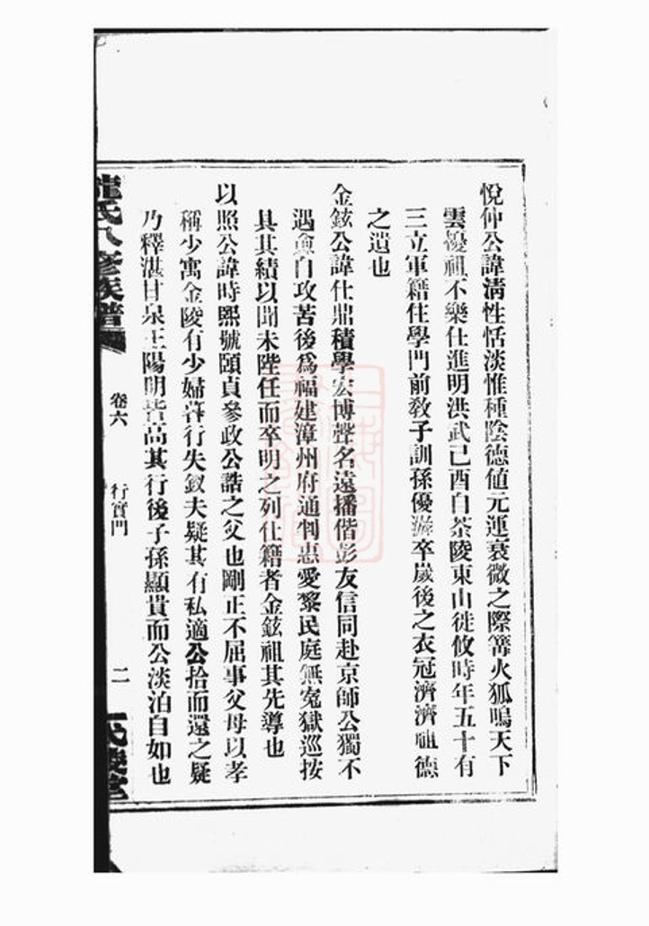 悅仲公諱淸性恬淡惟種陰德値元運衰微之際篝火狐鳴天下
雲擾祖不樂仕進明洪武己酉自茶陵東山徙攸時年五十有
三立軍籍住學門前敎子訓孫優游卒歲後之衣冠濟濟祖德
之遺也
金鉉公諱仕鼎積學宏博聲名遠播偕彭友信同赴京師公獨不
遇愈自攻苦後爲福建漳州府通判惠愛黎民庭無寃獄巡按
具其績以聞未陞任而卒明之列仕籍者金鉉祖其先導也
以照公諱時熙號頤貞參政公誥之父也剛正不屈事父母以孝
稱少寓金陵有少婦暮行失釵夫疑其有私適公拾而還之疑
乃釋湛甘泉王陽明皆高其行後子孫顯貴而公淡泊自如也
氏八修族譜
卷六
行實門
二